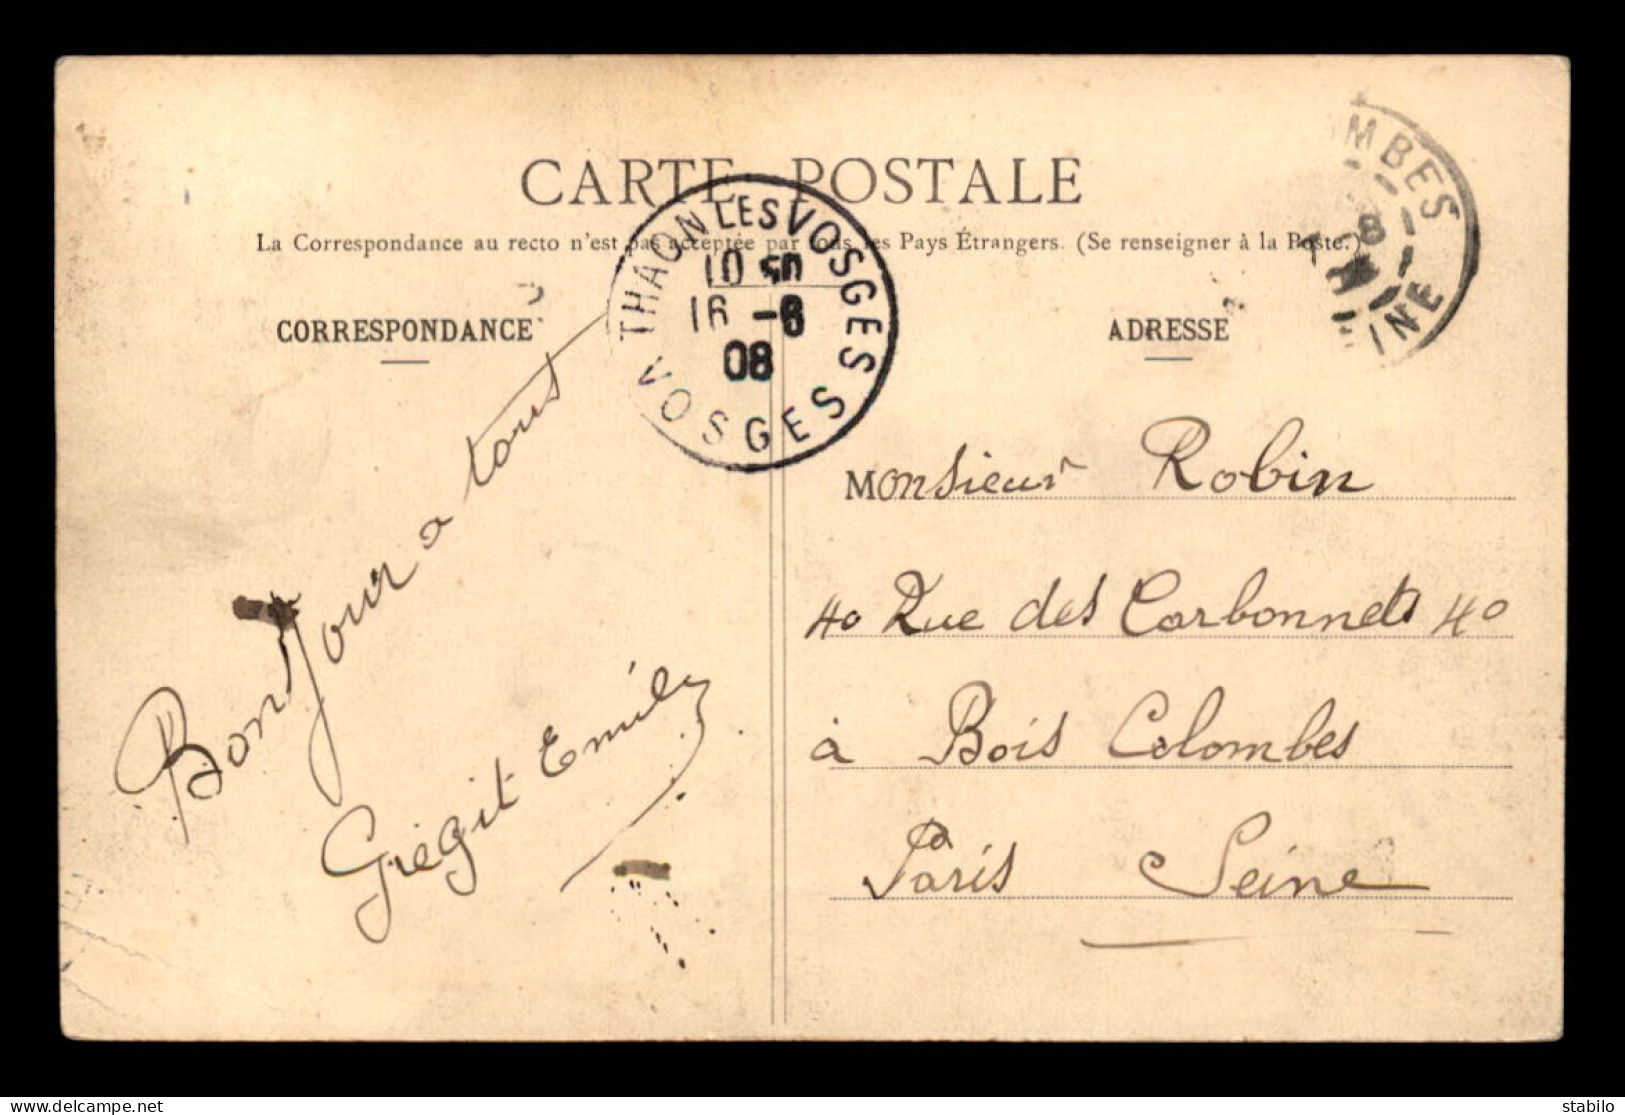 CARTE POSTALE
La Correspondance au recto n'est pas acceptée par tous les Pays Étrangers. (Se renseigner à la Poste.)
CORRESPONDANCE
ADRESSE
THAON LES VOSGES
10 50
16 -6
08
VOSGES
MBES
8
INE
Bonjour a tous
Emile
Monsieur Robin
40 Rue des Carbonnets 40
à Bois Colombes
Paris Seine
delcampe.net
stabilo